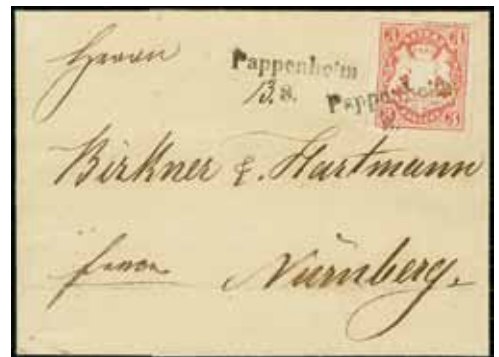 Herren
Pappenheim
13. 8.
3 3
Pappenheim
3 3
Birkner & Hartmann
franco
Nürnberg.